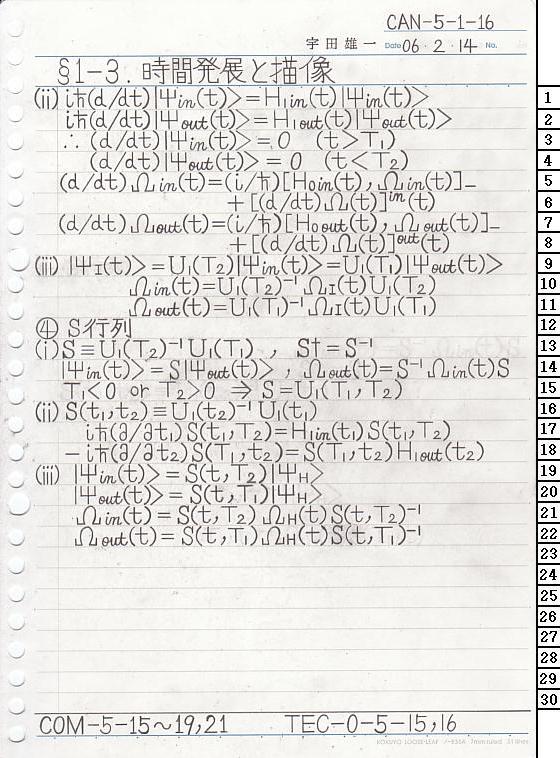 CAN-5-1-16
宇田雄一 Date 06・2・14 No.
§1-3. 時間発展と描像
(ii) iħ(d/dt)|Ψin(t)>=H1in(t)|Ψin(t)>
iħ(d/dt)|Ψout(t)>=H1out(t)|Ψout(t)>
∴ (d/dt)|Ψin(t)>=0 (t>T1)
(d/dt)|Ψout(t)>=0 (t<T2)
(d/dt)Ωin(t)=(i/ħ)[H0in(t),Ωin(t)]_
+[(d/dt)Ω(t)]^in(t)
(d/dt)Ωout(t)=(i/ħ)[H0out(t),Ωout(t)]_
+[(d/dt)Ω(t)]^out(t)
(iii) |ΨI(t)>=U1(T2)|Ψin(t)>=U1(T1)|Ψout(t)>
Ωin(t)=U1(T2)⁻¹ΩI(t)U1(T2)
Ωout(t)=U1(T1)⁻¹ΩI(t)U1(T1)
④ S行列
(i) S≡U1(T2)⁻¹U1(T1) , S†=S⁻¹
|Ψin(t)>=S|Ψout(t)> , Ωout(t)=S⁻¹Ωin(t)S
T1<0 or T2>0 ⇒ S=U1(T1,T2)
(ii) S(t1,t2)≡U1(t2)⁻¹U1(t1)
iħ(∂/∂t1)S(t1,T2)=H1in(t1)S(t1,T2)
-iħ(∂/∂t2)S(T1,t2)=S(T1,t2)H1out(t2)
(iii) |Ψin(t)>=S(t,T2)|ΨH>
|Ψout(t)>=S(t,T1)|ΨH>
Ωin(t)=S(t,T2)ΩH(t)S(t,T2)⁻¹
Ωout(t)=S(t,T1)ΩH(t)S(t,T1)⁻¹
COM-5-15~19,21 TEC-0-5-15,16
KOKUYO LOOSE-LEAF ノ-836A 7mm ruled 31 lines
1
2
3
4
5
6
7
8
9
10
11
12
13
14
15
16
17
18
19
20
21
22
23
24
25
26
27
28
29
30